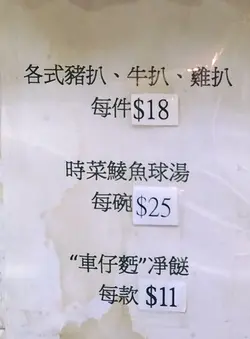 各式豬扒、牛扒、雞扒
每件$18
時菜鯪魚球湯
每碗$25
“車仔麪”淨餸
每款 $11